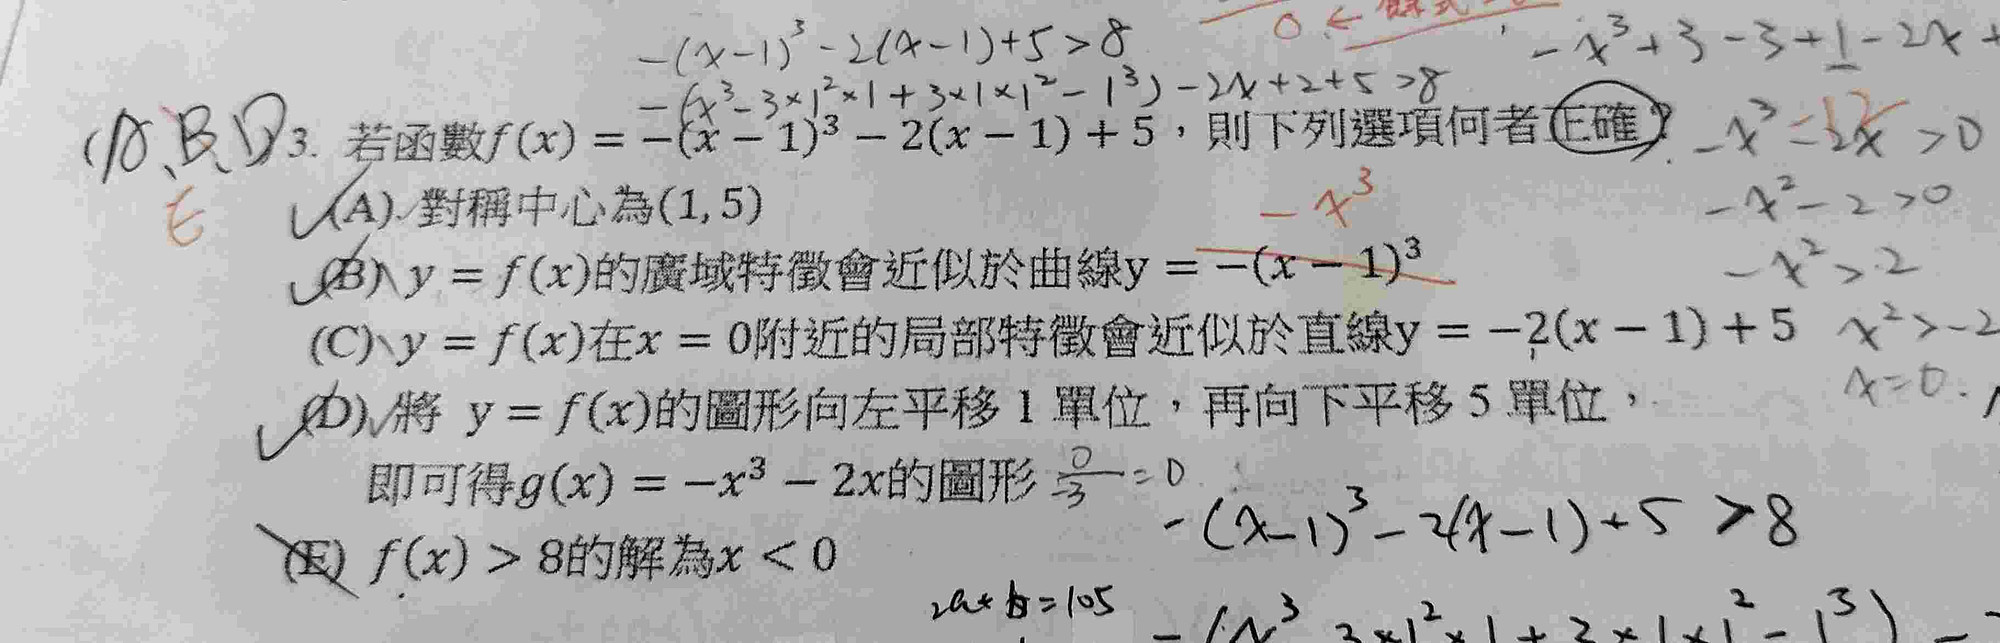 0 ←
-(x-1)³-2(x-1)+5>8
-x³+3-3+1-2x+
-(x³-3×1²×1+3×1×1²-1³)-2x+2+5>8
(A、B、D 3. 若函數f(x) = -(x - 1)³ - 2(x - 1) + 5，則下列選項何者正確?
-x³-2x>0
E (A) 對稱中心為(1, 5)
-x³
-x²-2>0
(B) y = f(x)的廣域特徵會近似於曲線y = -(x - 1)³
-x²>2
(C) y = f(x)在x = 0附近的局部特徵會近似於直線y = -2(x - 1) + 5
x²>-2
x=0.
(D) 將 y = f(x)的圖形向左平移 1 單位，再向下平移 5 單位，
即可得g(x) = -x³ - 2x的圖形
0/-3=0
-(x-1)³-2(x-1)+5>8
(E) f(x) > 8的解為x < 0
2a+b=105
-(x³-3×1²×1+3×1×1²-1³)-